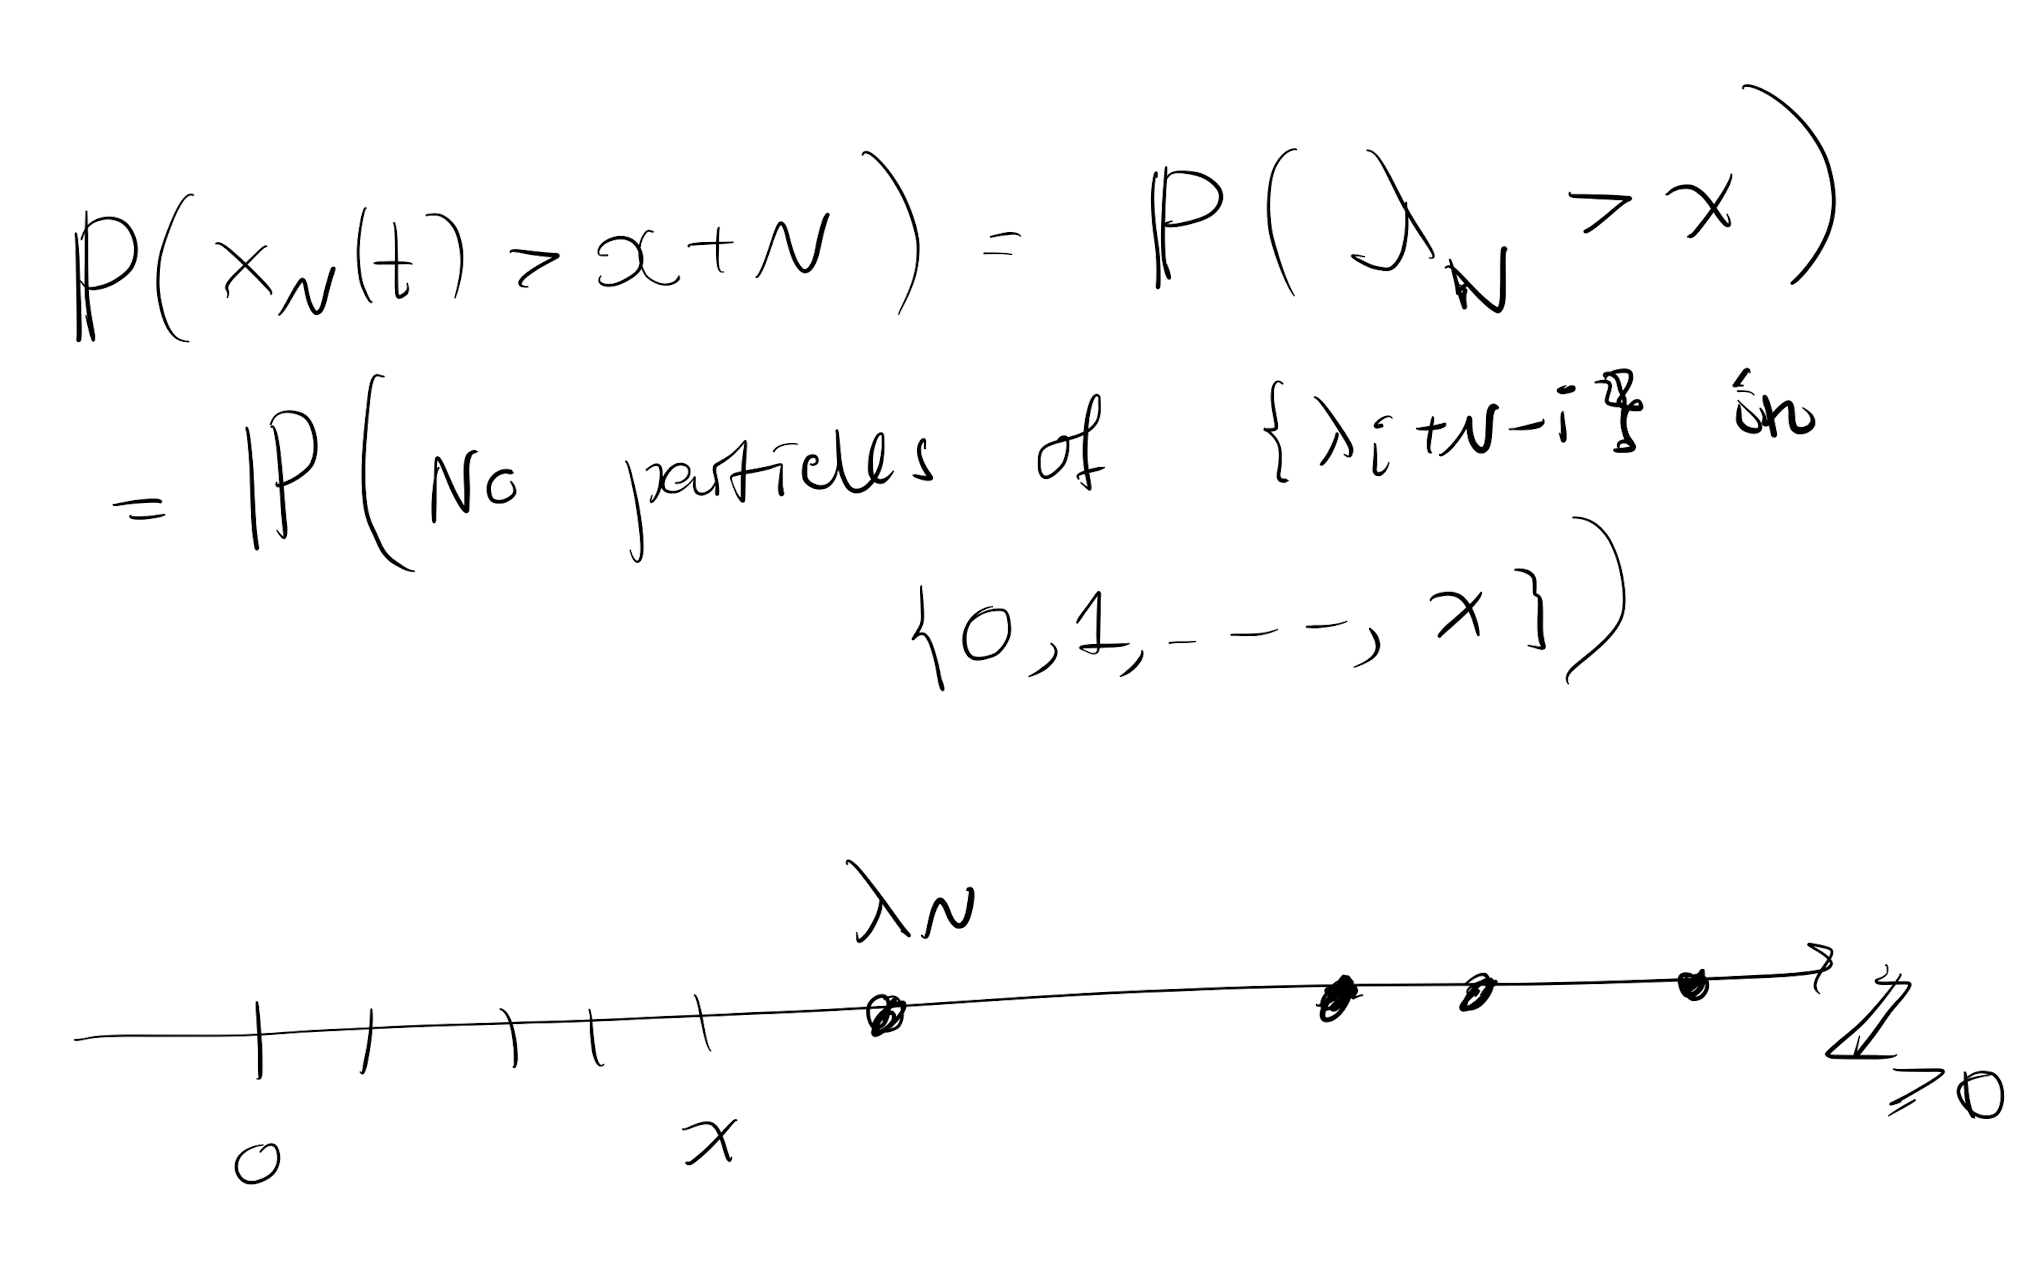 P(x_N(t) > x+N) = P(λ_N > x)
= P(No particles of {λ_i+N-i} in
{0,1,----,x})
λ_N
0 x ℤ_≥0